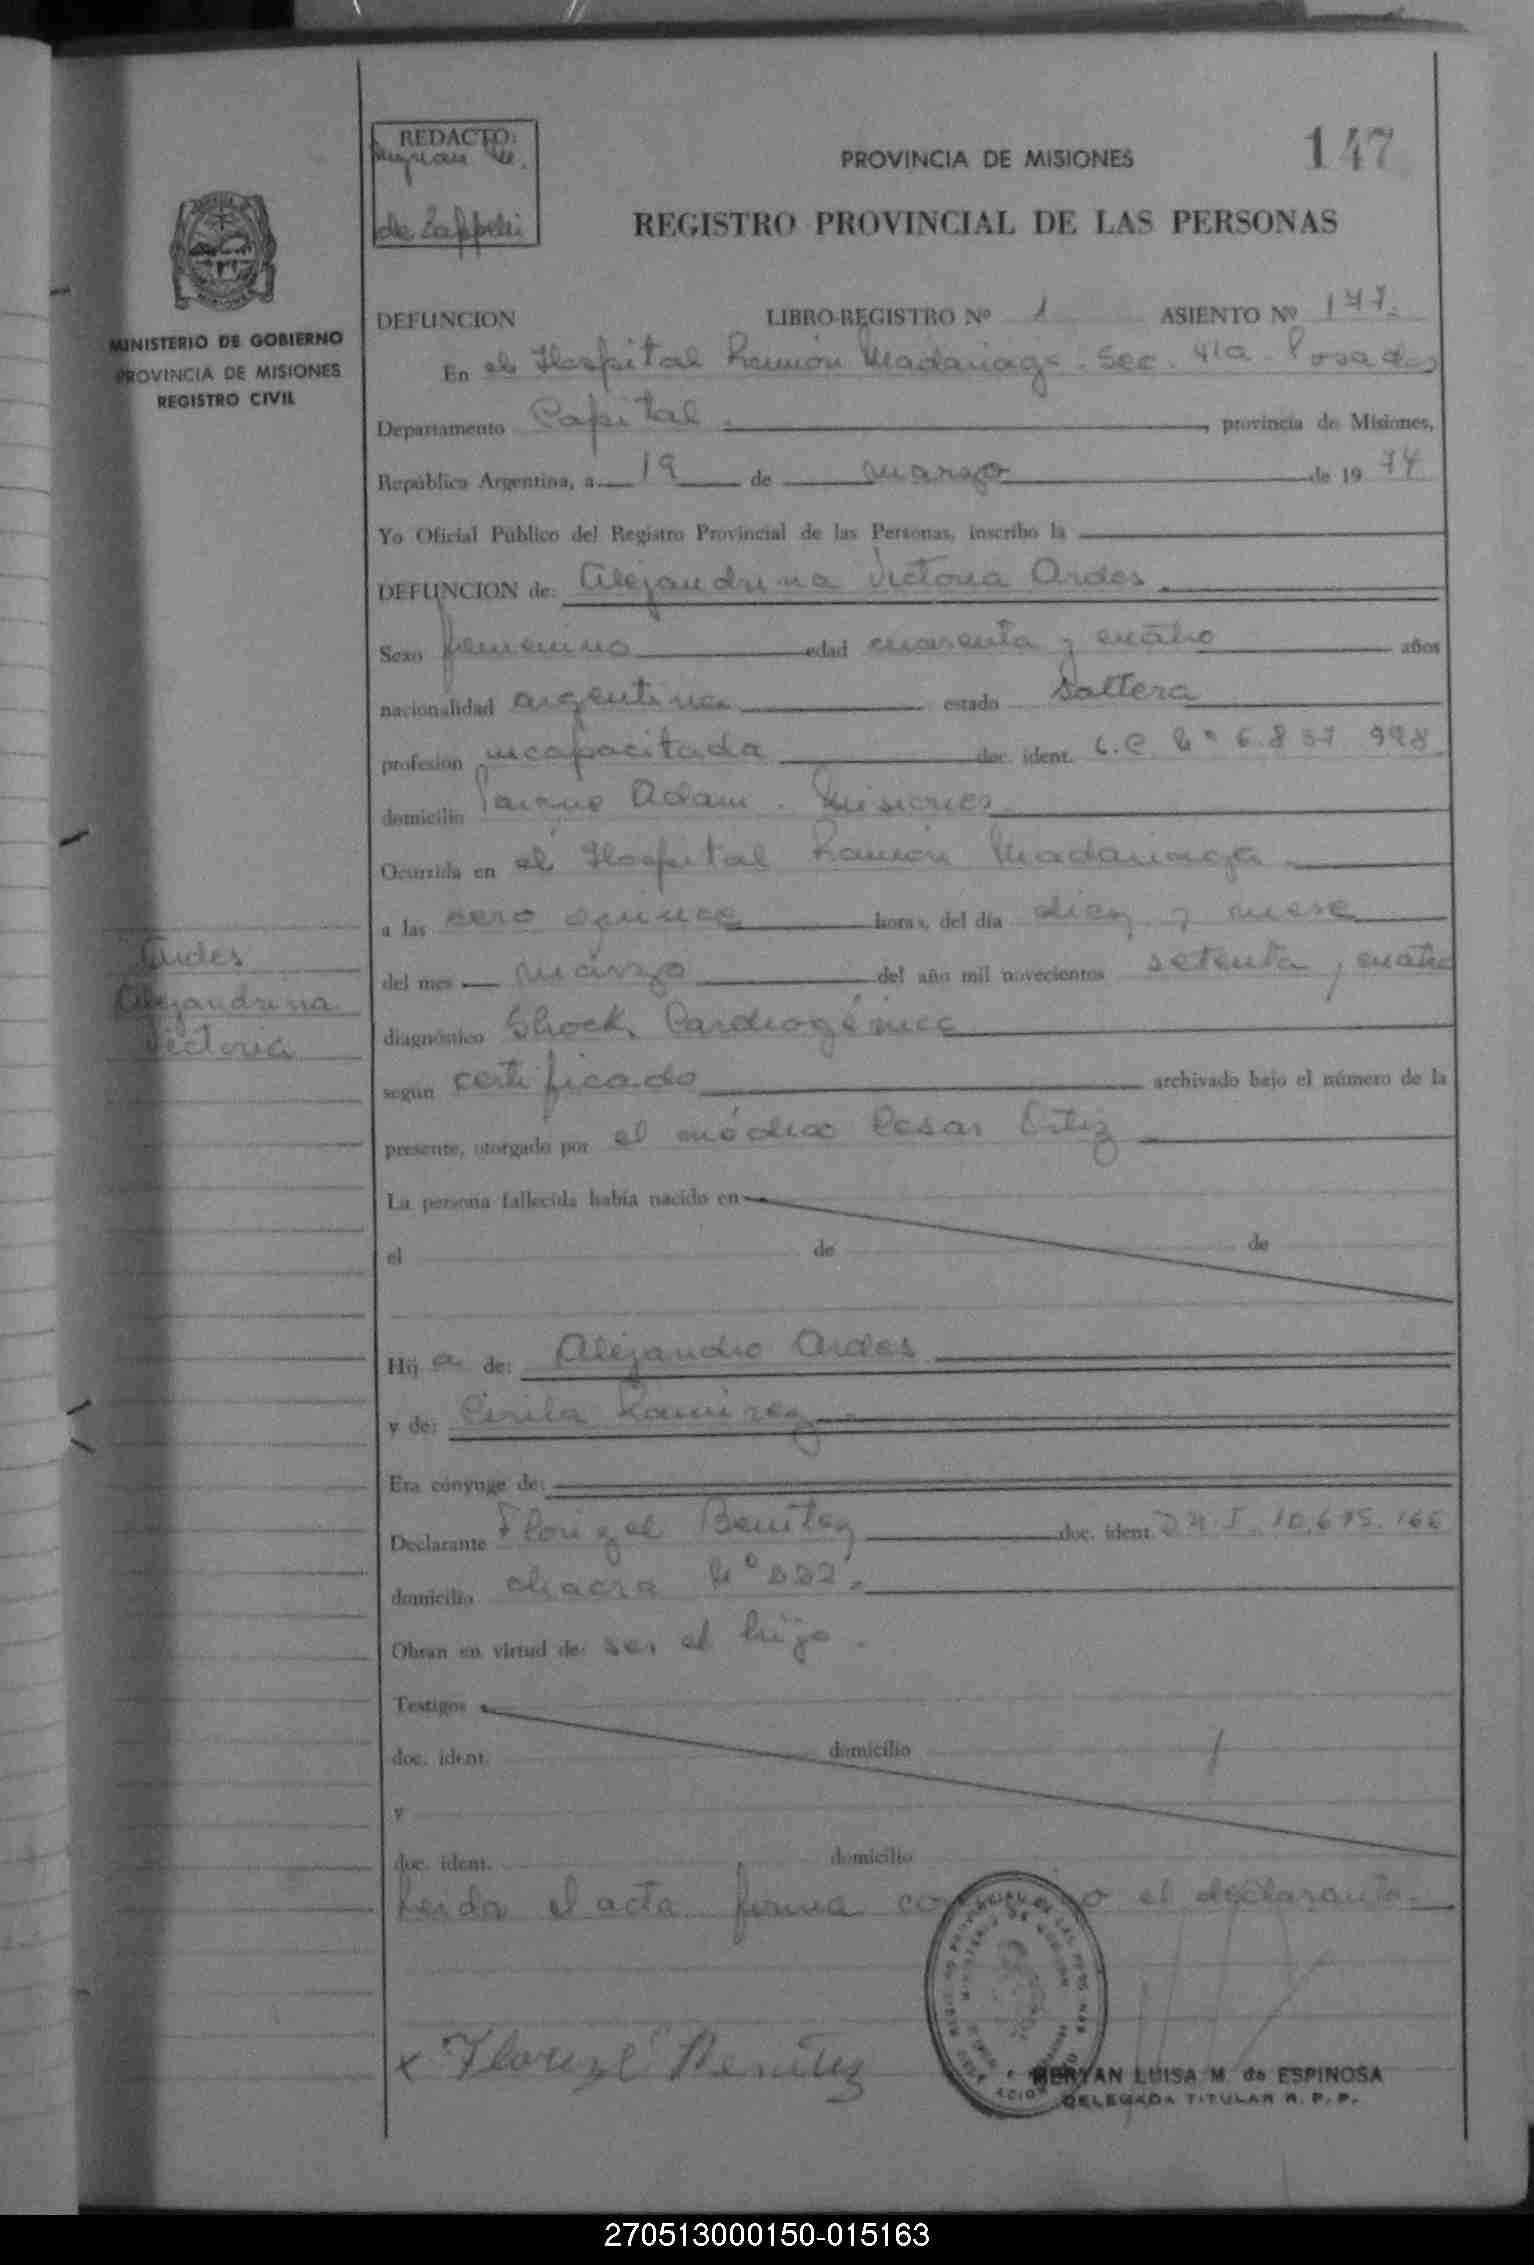 REDACTO:
de Zappelli
PROVINCIA DE MISIONES
147
REGISTRO PROVINCIAL DE LAS PERSONAS
MINISTERIO DE GOBIERNO
PROVINCIA DE MISIONES
REGISTRO CIVIL
DEFUNCION LIBRO-REGISTRO Nº 1 ASIENTO Nº 147.
En el Hospital Ramón Madariaga. Sec. 41a. Posadas
Departamento Capital. , provincia de Misiones,
República Argentina, a 19 de marzo de 1974
Yo Oficial Público del Registro Provincial de las Personas, inscribo la
DEFUNCION de: Alejandrina Victoria Ardes
Sexo femenino edad cuarenta y cuatro años
nacionalidad argentina estado Soltera
profesión incapacitada doc. ident. L.C. Nº 6.837.998
domicilio Adam. Misiones.
Ocurrida en el Hospital Ramón Madariaga
a las cero quince horas, del día diez y nueve
del mes marzo del año mil novecientos setenta y cuatro
diagnóstico Shock Cardiogénico
según certificado archivado bajo el número de la
presente, otorgado por el médico Cesar Ortiz
La persona fallecida había nacido en
el de de
Ardes
Alejandrina
Victoria
Hij a de: Alejandro Ardes
y de: Cirila Ramirez
Era cónyuge de:
Declarante Florizel Benitez doc. ident. D.N.I. 10.675.166
domicilio chacra Nº 222.
Obran en virtud de: ser el hijo.
Testigos
doc. ident. domicilio
y
doc. ident. domicilio
Leida el acta firma conmigo el declarante.
x "Florizel" Benitez
MERYAN LUISA M. de ESPINOSA
DELEGADA TITULAR R. P. P.
270513000150-015163